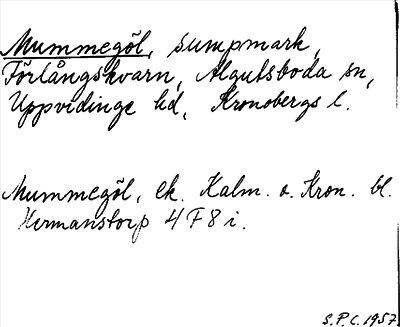 Mummegöl, sumpmark,
Förlångskvarn, Algutsboda sn,
Uppvidinge hd, Kronobergs l.
Mummegöl, ek. Kalm. o. Kron. bl.
Hermanstorp 4F8i.
S.P.C. 1957